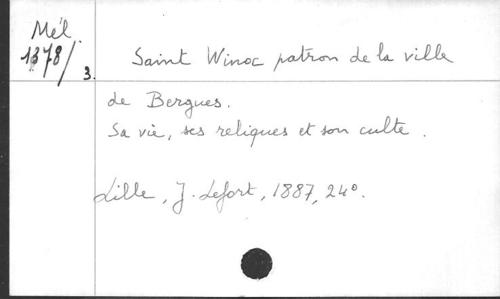 Mél.
1378/3.
Saint Winoc patron de la ville
de Bergues.
Sa vie, ses reliques et son culte.
Lille, J. Lefort, 1887, 24°.